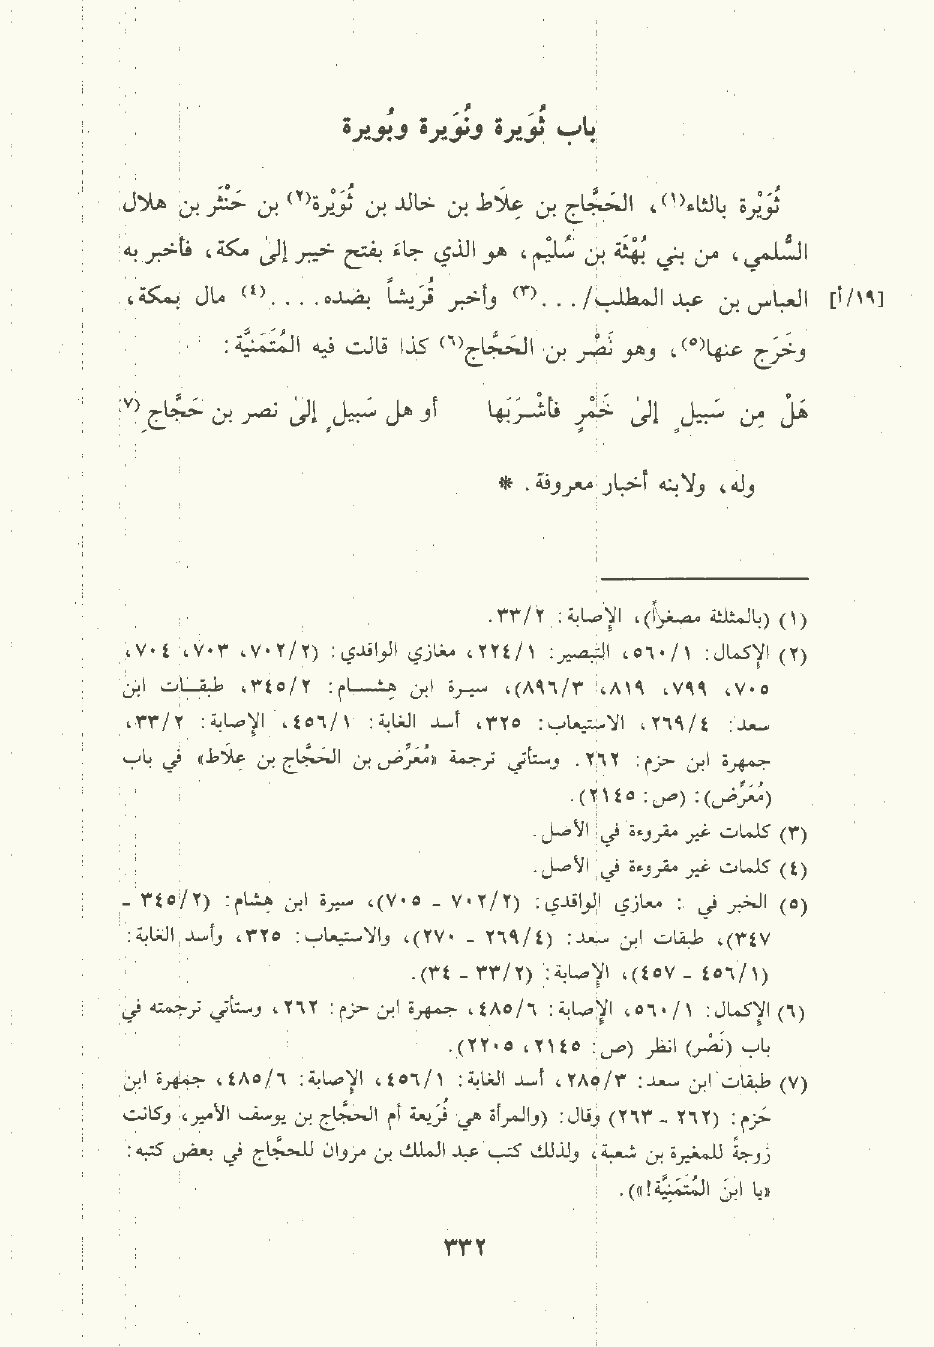 باب ثُوَيرة ونُوَيرة وبُويرة
ثُوَيْرة بالثاء(١)، الحَجَّاج بن عِلَاط بن خالد بن ثُوَيْرة(٢) بن حَنْثَر بن هلال
السُّلمي، من بني بُهْثَة بن سُلَيْم، هو الذي جاءَ بفتح خيبر إلىٰ مكة، فأخبر به
[١٩/أ] العباس بن عبد المطلب/...(٣) وأخبر قُرَيشاً بضده....(٤) مال بمكة،
وخَرَج عنها(٥)، وهو نَصْر بن الحَجَّاج(٦) كذا قالت فيه المُتَمَنيَّة:
هَلْ مِن سَبيلٍ إلىٰ خَمْرٍ فأشْـرَبَها أو هل سَبيلٍ إلىٰ نصر بن حَجَّاجِ(٧)
وله، ولابنه أخبار معروفة. *
(١) (بالمثلثة مصغراً)، الإصابة: ٣٣/٢.
(٢) الإكمال: ٥٦٠/١، التبصير: ٢٢٤/١، مغازي الواقدي: (٧٠٢/٢، ٧٠٣، ٧٠٤،
٧٠٥، ٧٩٩، ٨١٩، ٨٩٦/٣)، سيرة ابن هِشـام: ٣٤٥/٢، طبقـات ابن
سعد: ٢٦٩/٤، الاستيعاب: ٣٢٥، أسد الغابة: ٤٥٦/١، الإصابة: ٣٣/٢،
جمهرة ابن حزم: ٢٦٢. وستأتي ترجمة «مُعَرِّض بن الحَجَّاج بن عِلَاط» في باب
(مُعَرِّض): (ص: ٢١٤٥).
(٣) كلمات غير مقروءة في الأصل.
(٤) كلمات غير مقروءة في الأصل.
(٥) الخبر في: مغازي الواقدي: (٧٠٢/٢ - ٧٠٥)، سيرة ابن هِشام: (٣٤٥/٢ -
٣٤٧)، طبقات ابن سعد: (٢٦٩/٤ - ٢٧٠)، والاستيعاب: ٣٢٥، وأسد الغابة:
(٤٥٦/١ - ٤٥٧)، الإصابة: (٣٣/٢ - ٣٤).
(٦) الإكمال: ٥٦٠/١، الإصابة: ٤٨٥/٦، جمهرة ابن حزم: ٢٦٢، وستأتي ترجمته في
باب (نَصْر) انظر (ص: ٢١٤٥، ٢٢٠٥).
(٧) طبقات ابن سعد: ٢٨٥/٣، أسد الغابة: ٤٥٦/١، الإصابة: ٤٨٥/٦، جمهرة ابن
حَزم: (٢٦٢ - ٢٦٣) وقال: (والمرأة هي فُرَيعة أم الحجَّاج بن يوسف الأمير، وكانت
زوجةً للمغيرة بن شعبة، ولذلك كتب عبد الملك بن مروان للحجَّاج في بعض كتبه:
«يا ابنَ المُتَمَنِيَّة!»).
٣٣٢